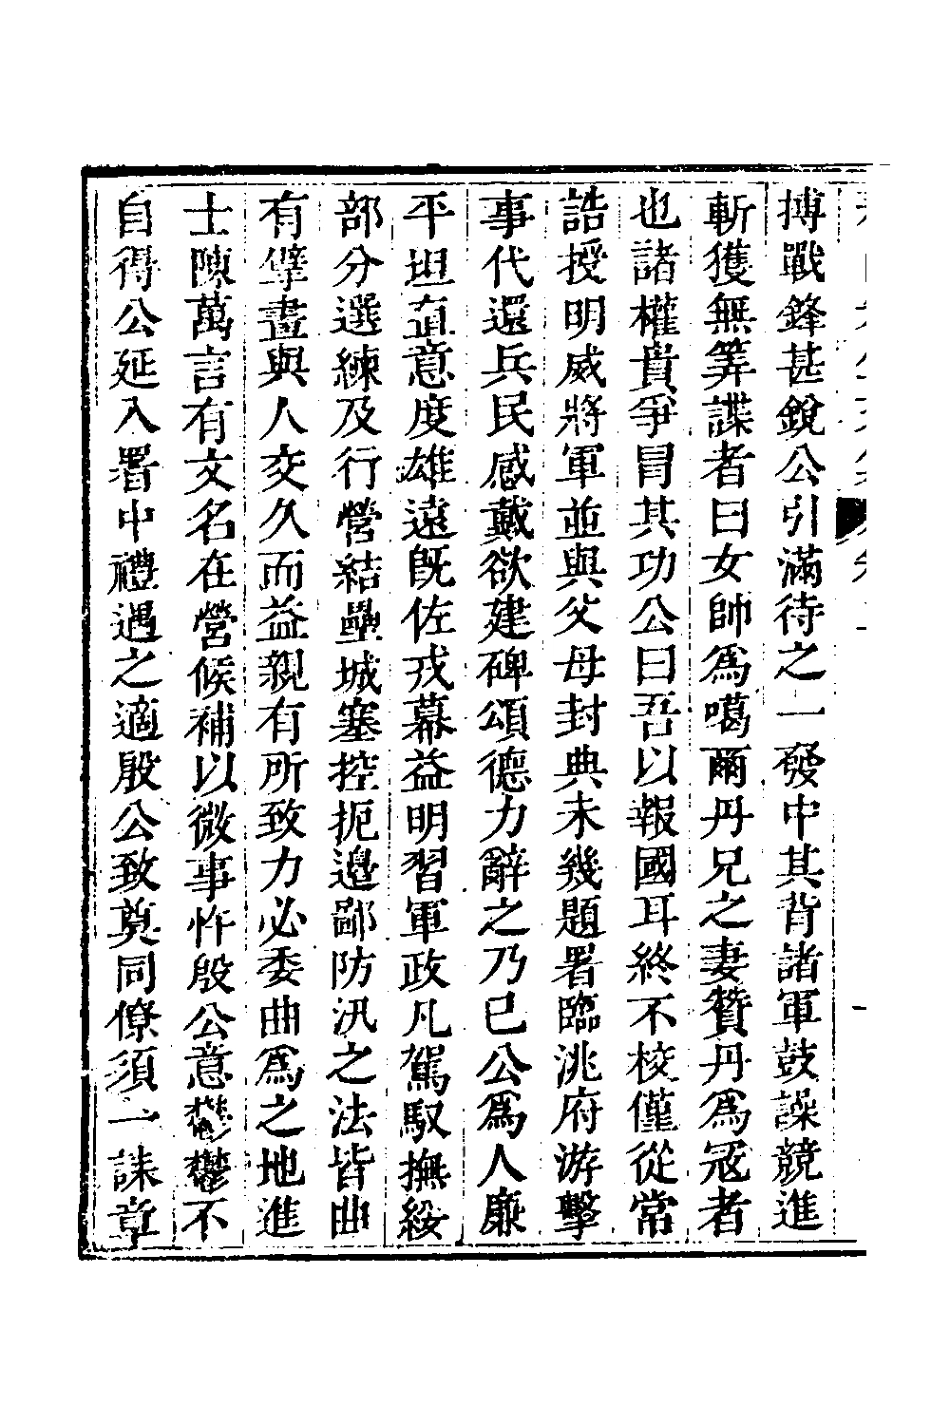 搏戰鋒甚銳公引滿待之一發中其背諸軍鼓譟競進
斬獲無筭諜者曰女帥為噶爾丹兄之妻贊丹為寇者
也諸權貴爭冒其功公曰吾以報國耳終不校僅從常
誥授明威將軍並與父母封典未幾題署臨洮府游擊
事代還兵民感戴欲建碑頌德力辭之乃已公為人廉
平坦直意度雄遠既佐戎幕益明習軍政凡駕馭撫綏
部分選練及行營結壘城塞控扼邊鄙防汛之法皆曲
有擘畫與人交久而益親有所致力必委曲為之地進
士陳萬言有文名在營候補以微事忤殷公意鬱鬱不
自得公延入署中禮遇之適殷公致奠同僚須一誄章